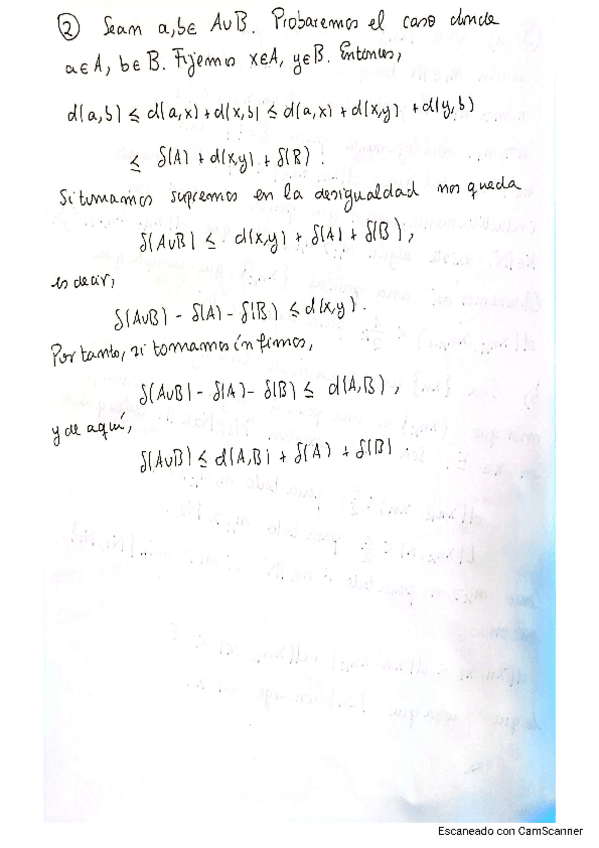 ② Sean a,b∈ A∪B. Probaremos el caso donde
a∈A, b∈B. Fijemos x∈A, y∈B. Entonces,
d(a,b) ≤ d(a,x) + d(x,b) ≤ d(a,x) + d(x,y) + d(y,b)
≤ δ(A) + d(x,y) + δ(B).
Si tomamos supremos en la desigualdad nos queda
δ(A∪B) ≤ d(x,y) + δ(A) + δ(B),
es decir,
δ(A∪B) - δ(A) - δ(B) ≤ d(x,y).
Por tanto, si tomamos ínfimos,
δ(A∪B) - δ(A) - δ(B) ≤ d(A,B),
y de aquí,
δ(A∪B) ≤ d(A,B) + δ(A) + δ(B)
Escaneado con CamScanner